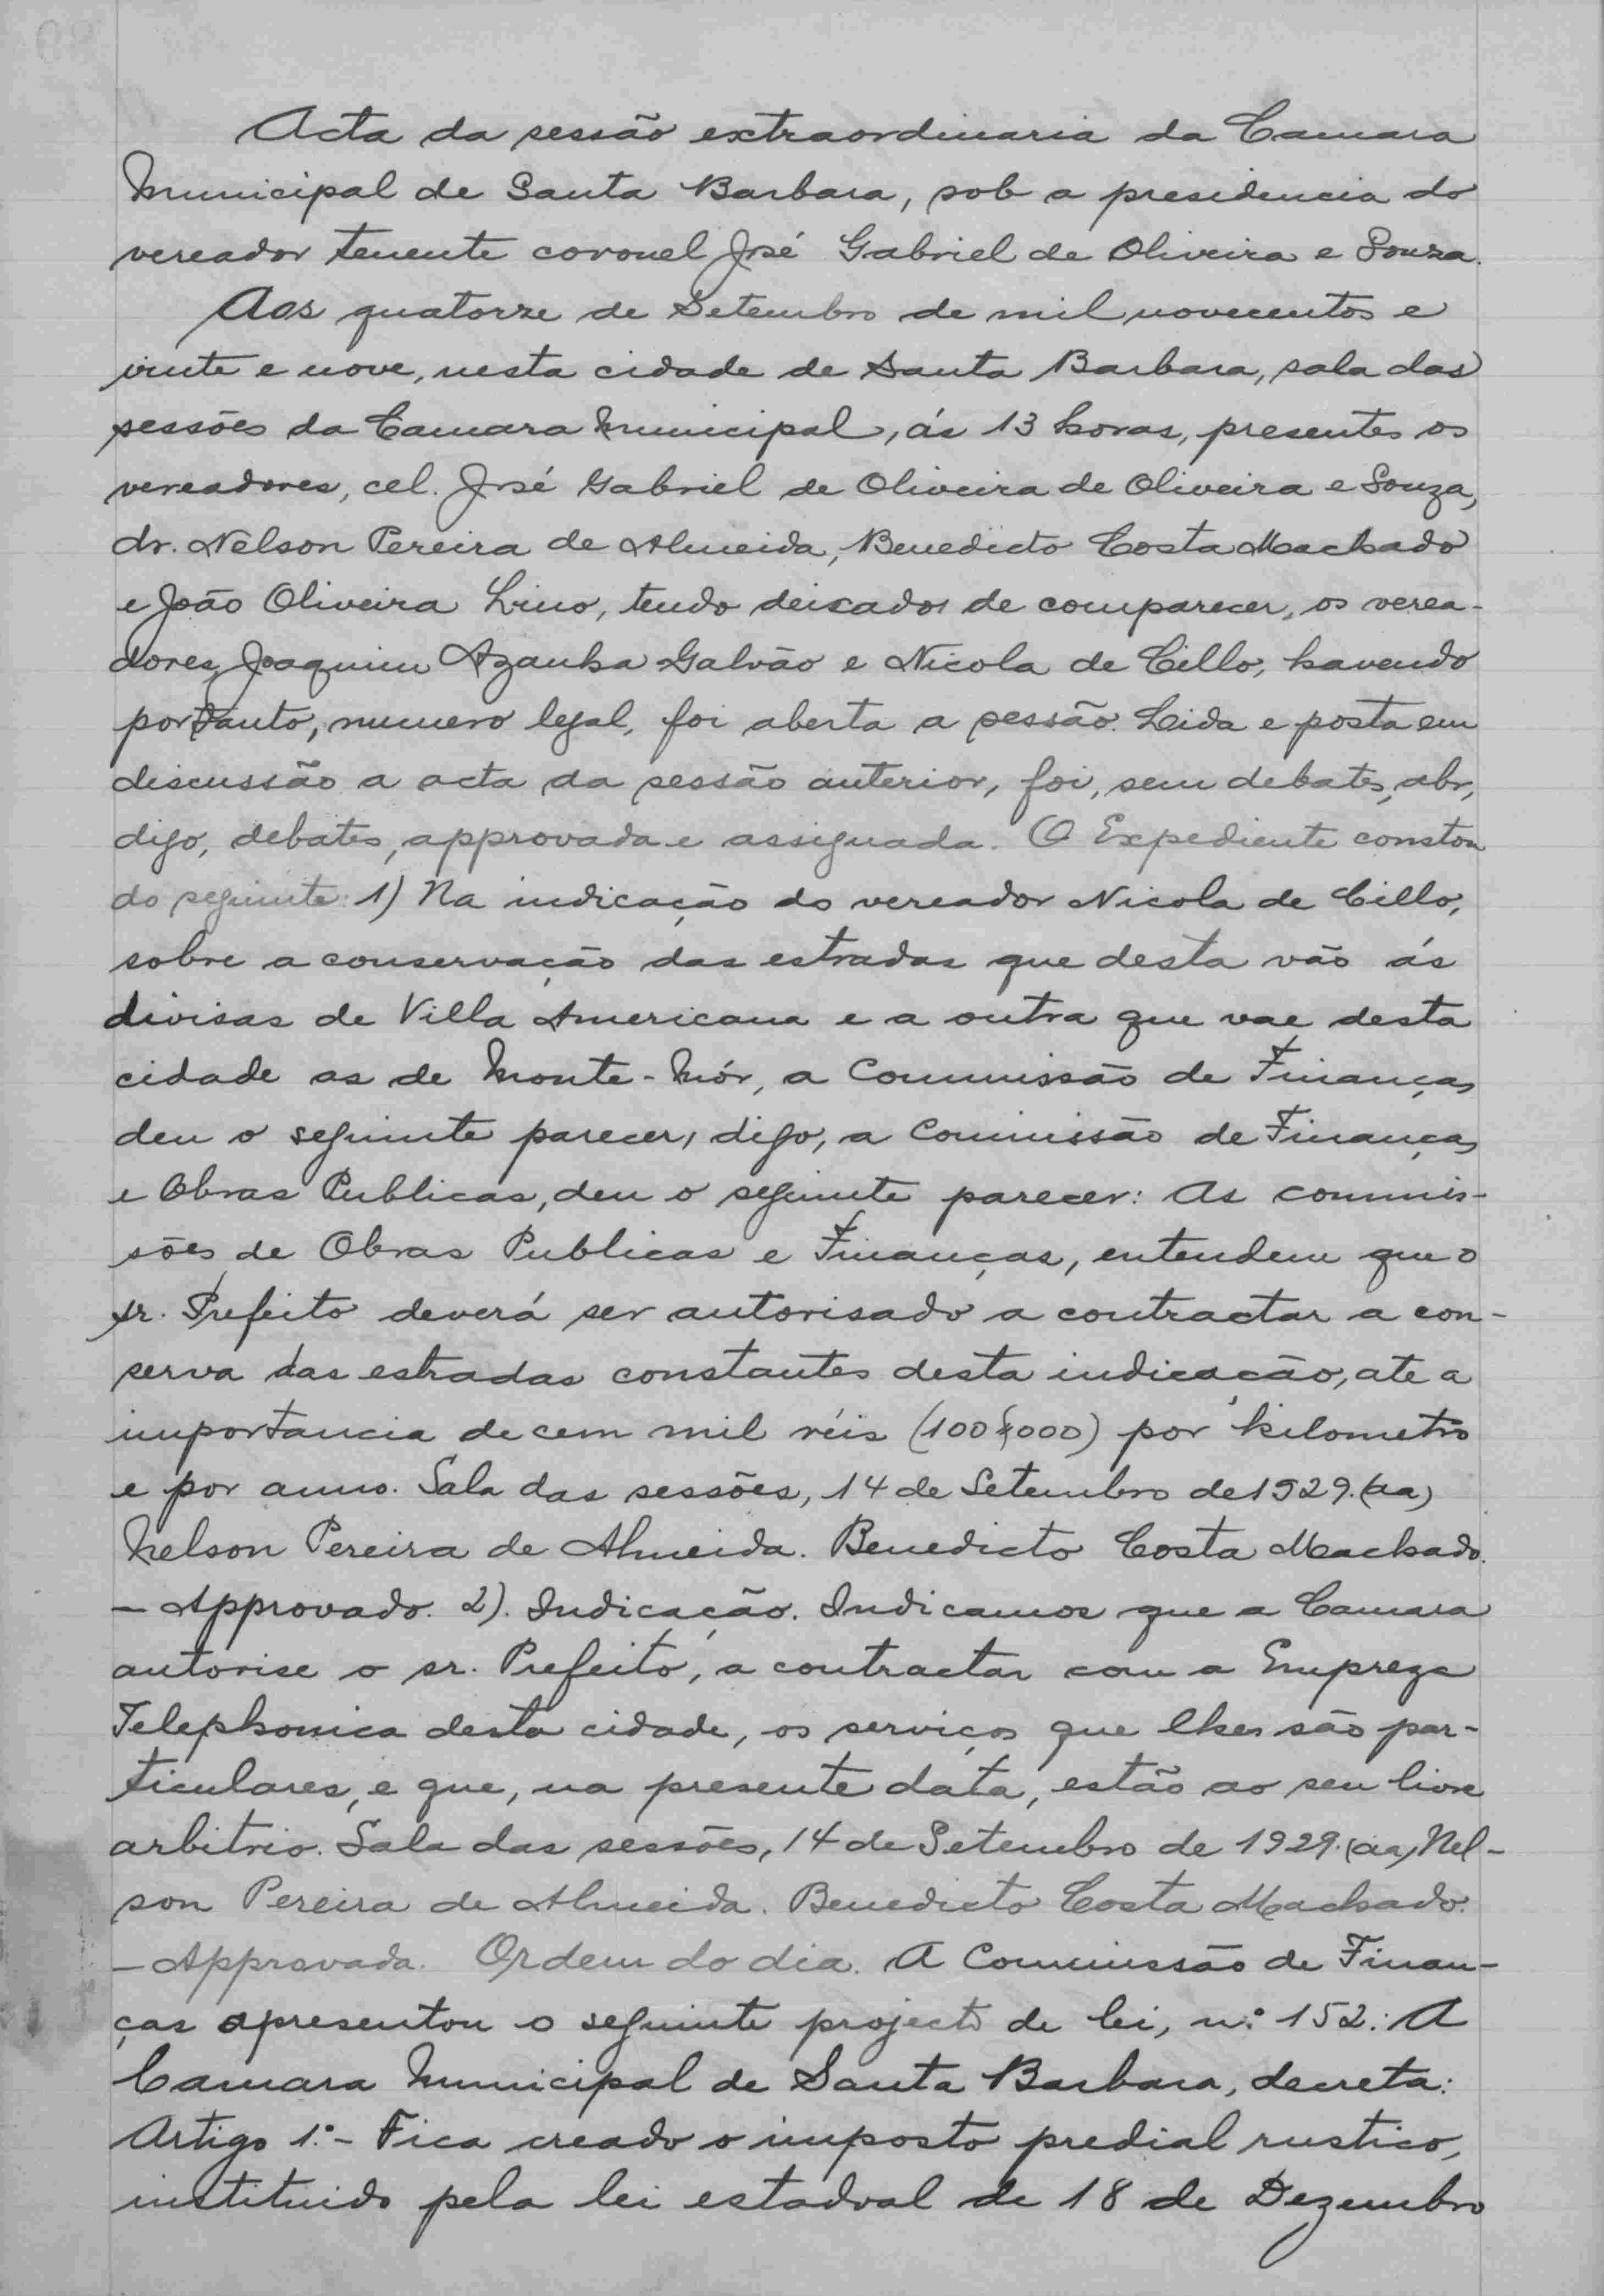 Acta da sessão extraordinaria da Camara
Municipal de Santa Barbara, sob a presidencia do
vereador tenente coronel José Gabriel de Oliveira e Souza.
Aos quatorze de Setembro de mil novecentos e
vinte e nove, nesta cidade de Santa Barbara, sala das
sessões da Camara Municipal, ás 13 horas, presentes os
vereadores, cel. José Gabriel de Oliveira de Oliveira e Souza,
dr. Nelson Pereira de Almeida, Benedicto Costa Machado
e João Oliveira Lino, tendo deixados de comparecer, os verea-
dores, Joaquim Azanha Galvão e Nicola de Cillo, havendo
portanto, numero legal, foi aberta a sessão. Lida e posta em
discussão a acta da sessão anterior, foi, sem debates, abr,
digo, debates, approvada e assignada. O Expediente constou
do seguinte: 1) Na indicação do vereador Nicola de Cillo,
sobre a conservação das estradas que desta vão ás
divisas de Villa Americana e a outra que vae desta
cidade as de Monte-Mór, a Commissão de Finanças
deu o seguinte parecer, digo, a Commissão de Finanças
e Obras Publicas, deu o seguinte parecer: As commis-
sões de Obras Publicas e Finanças, entendem que o
sr. Prefeito deverá ser autorisado a contractar a con-
serva das estradas constantes desta indicação, ate a
importancia de cem mil réis (100$000) por kilometro
e por anno. Sala das sessões, 14 de Setembro de 1929. (aa)
Nelson Pereira de Almeida. Benedicto Costa Machado.
- Approvado. 2). Indicação. Indicamos que a Camara
autorise o sr. Prefeito, a contractar com a Empreza
Telephonica desta cidade, os serviços que lhes são par-
ticulares, e que, na presente data, estão ao seu livre
arbitrio. Sala das sessões, 14 de Setembro de 1929. (aa) Nel-
son Pereira de Almeida. Benedicto Costa Machado.
- Approvada. Ordem do dia. A Commissão de Finan-
ças apresentou o seguinte projecto de lei, n.º 152: A
Camara Municipal de Santa Barbara, decreta:
Artigo 1.º - Fica creado o imposto predial rustico,
instituido pela lei estadoal de 18 de Dezembro